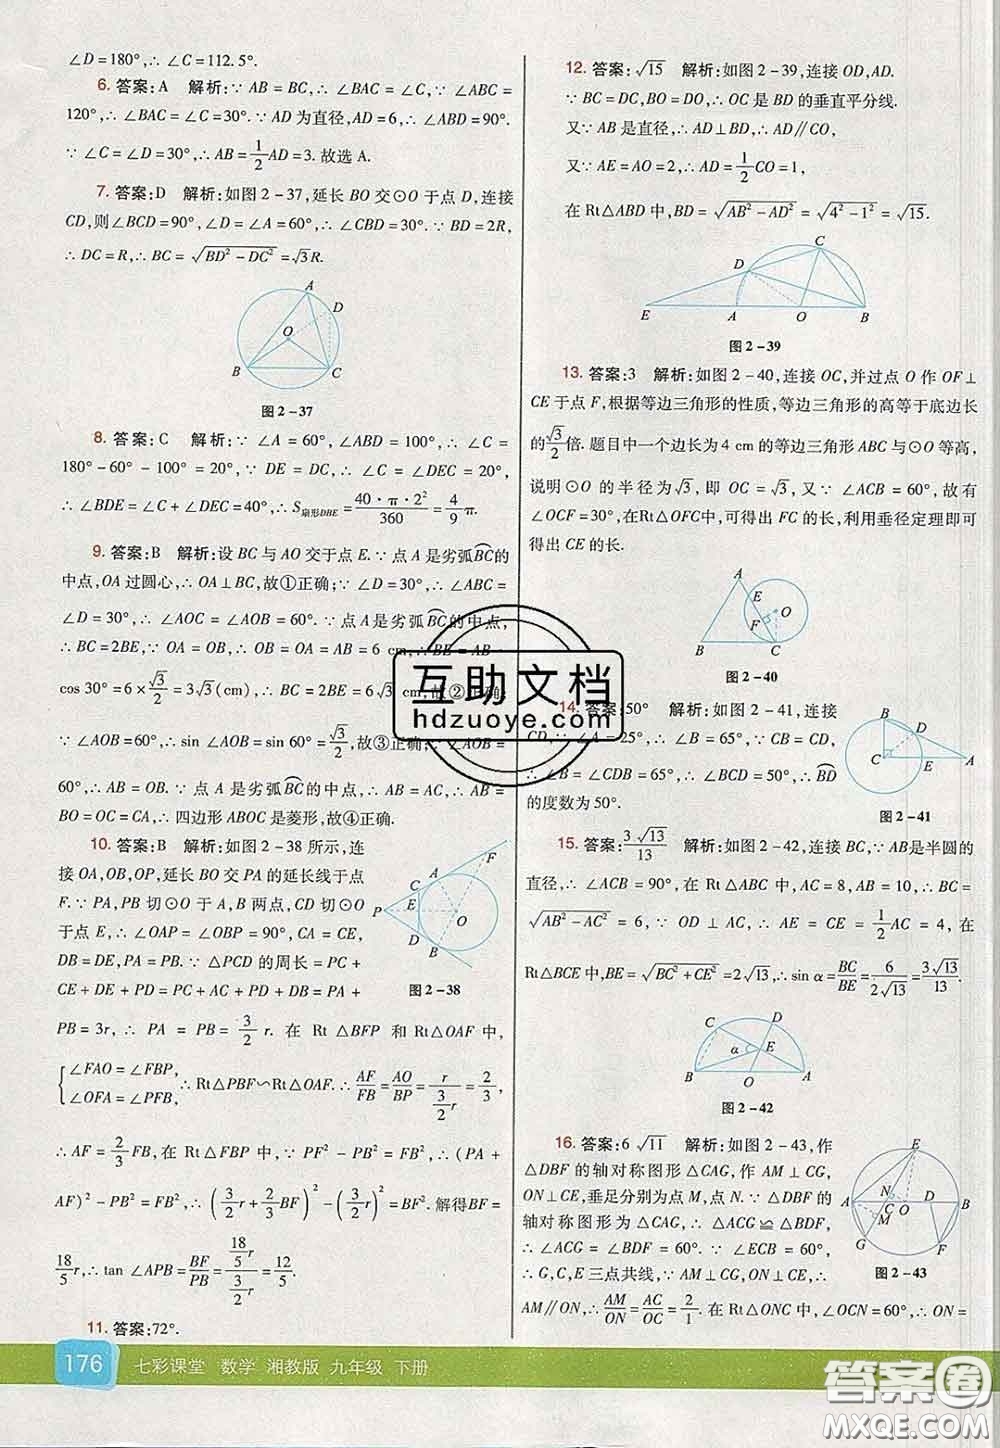 ∠D=180°,∴∠C=112.5°.
6. 答案:A 解析:∵AB=BC,∴∠BAC=∠C,∵∠ABC=
120°,∴∠BAC=∠C=30°.∵AD为直径,AD=6,∴∠ABD=90°.
∵∠C=∠D=30°,∴AB=1/2AD=3.故选A.
7. 答案:D 解析:如图2-37,延长BO交⊙O于点D,连接
CD,则∠BCD=90°,∠D=∠A=60°,∴∠CBD=30°.∵BD=2R,
∴DC=R,∴BC=√(BD²-DC²)=√3R.
A
D
O
B
C
图2-37
8. 答案:C 解析:∵∠A=60°,∠ABD=100°,∴∠C=
180°-60°-100°=20°,∵DE=DC,∴∠C=∠DEC=20°,
∴∠BDE=∠C+∠DEC=40°,∴S扇形DBE=40·π·2²/360=4/9π.
9. 答案:B 解析:设BC与AO交于点E.∵点A是劣弧BC的
中点,OA过圆心,∴OA⊥BC,故①正确;∵∠D=30°,∴∠ABC=
∠D=30°,∴∠AOC=∠AOB=60°.∵点A是劣弧BC的中点,
∴BC=2BE,∵OA=OB,∴OB=OA=AB=6 cm,∴BE=AB·
cos30°=6×√3/2=3√3(cm),∴BC=2BE=6√3 cm,故②正确;
∵∠AOB=60°,∴sin∠AOB=sin60°=√3/2,故③正确;∵∠AOB=
60°,∴AB=OB.∵点A是劣弧BC的中点,∴AB=AC=OA=
BO=OC=CA,∴四边形ABOC是菱形,故④正确.
10. 答案:B 解析:如图2-38所示,连
接OA,OB,OP,延长BO交PA的延长线于点
F.∵PA,PB切⊙O于A,B两点,CD切⊙O
于点E,∴∠OAP=∠OBP=90°,CA=CE,
DB=DE,PA=PB,∵△PCD的周长=PC+
CE+DE+PD=PC+AC+PD+DB=PA+
PB=3r,∴PA=PB=3/2r.在Rt△BFP和Rt△OAF中,
F
A
C
P
E
O
D
B
图2-38
{∠FAO=∠FBP,
∠OFA=∠PFB,∴Rt△PBF∽Rt△OAF.∴AF/FB=AO/BP=r/(3/2r)=2/3,
∴AF=2/3FB,在Rt△FBP中,∵PF²-PB²=FB²,∴(PA+
AF)²-PB²=FB²,∴(3/2r+2/3BF)²-(3/2r)²=BF².解得BF=
18/5r,∴tan∠APB=BF/PB=(18/5r)/(3/2r)=12/5.
11. 答案:72°.
12. 答案:√15 解析:如图2-39,连接OD,AD.
∵BC=DC,BO=DO,∴OC是BD的垂直平分线.
又∵AB是直径,∴AD⊥BD,∴AD∥CO,
又∵AE=AO=2,∴AD=1/2CO=1,
在Rt△ABD中,BD=√(AB²-AD²)=√(4²-1²)=√15.
C
D
E
A
O
B
图2-39
13. 答案:3 解析:如图2-40,连接OC,并过点O作OF⊥
CE于点F,根据等边三角形的性质,等边三角形的高等于底边长
的√3/2倍.题目中一个边长为4 cm的等边三角形ABC与⊙O等高,
说明⊙O的半径为√3,即OC=√3,又∵∠ACB=60°,故有
∠OCF=30°,在Rt△OFC中,可得出FC的长,利用垂径定理即可
得出CE的长.
A
E
O
F
B
C
图2-40
14. 答案:50° 解析:如图2-41,连接
CD,∵∠A=25°,∴∠B=65°,∵CB=CD,
∴∠B=∠CDB=65°,∴∠BCD=50°,∴BD
的度数为50°.
B
D
C
E
A
图2-41
15. 答案:3√13/13 解析:如图2-42,连接BC,∵AB是半圆的
直径,∴∠ACB=90°,在Rt△ABC中,AC=8,AB=10,∴BC=
√(AB²-AC²)=6,∵OD⊥AC,∴AE=CE=1/2AC=4,在
Rt△BCE中,BE=√(BC²+CE²)=2√13,∴sinα=BC/BE=6/2√13=3√13/13.
D
C
α
E
B
O
A
图2-42
16. 答案:6√11 解析:如图2-43,作
△DBF的轴对称图形△CAG,作AM⊥CG,
ON⊥CE,垂足分别为点M,点N.∵△DBF的
轴对称图形为△CAG,∴△ACG≌△BDF,
∴∠ACG=∠BDF=60°.∵∠ECB=60°,
∴G,C,E三点共线,∵AM⊥CG,ON⊥CE,∴
AM∥ON,∴AM/ON=AC/OC=2/1.在Rt△ONC中,∠OCN=60°,∴ON=
E
N
D
A
C
O
B
M
G
F
图2-43
互助文档
hdzuoye.com
176 七彩课堂 数学 湘教版 九年级 下册
答案圈
MXQE.COM